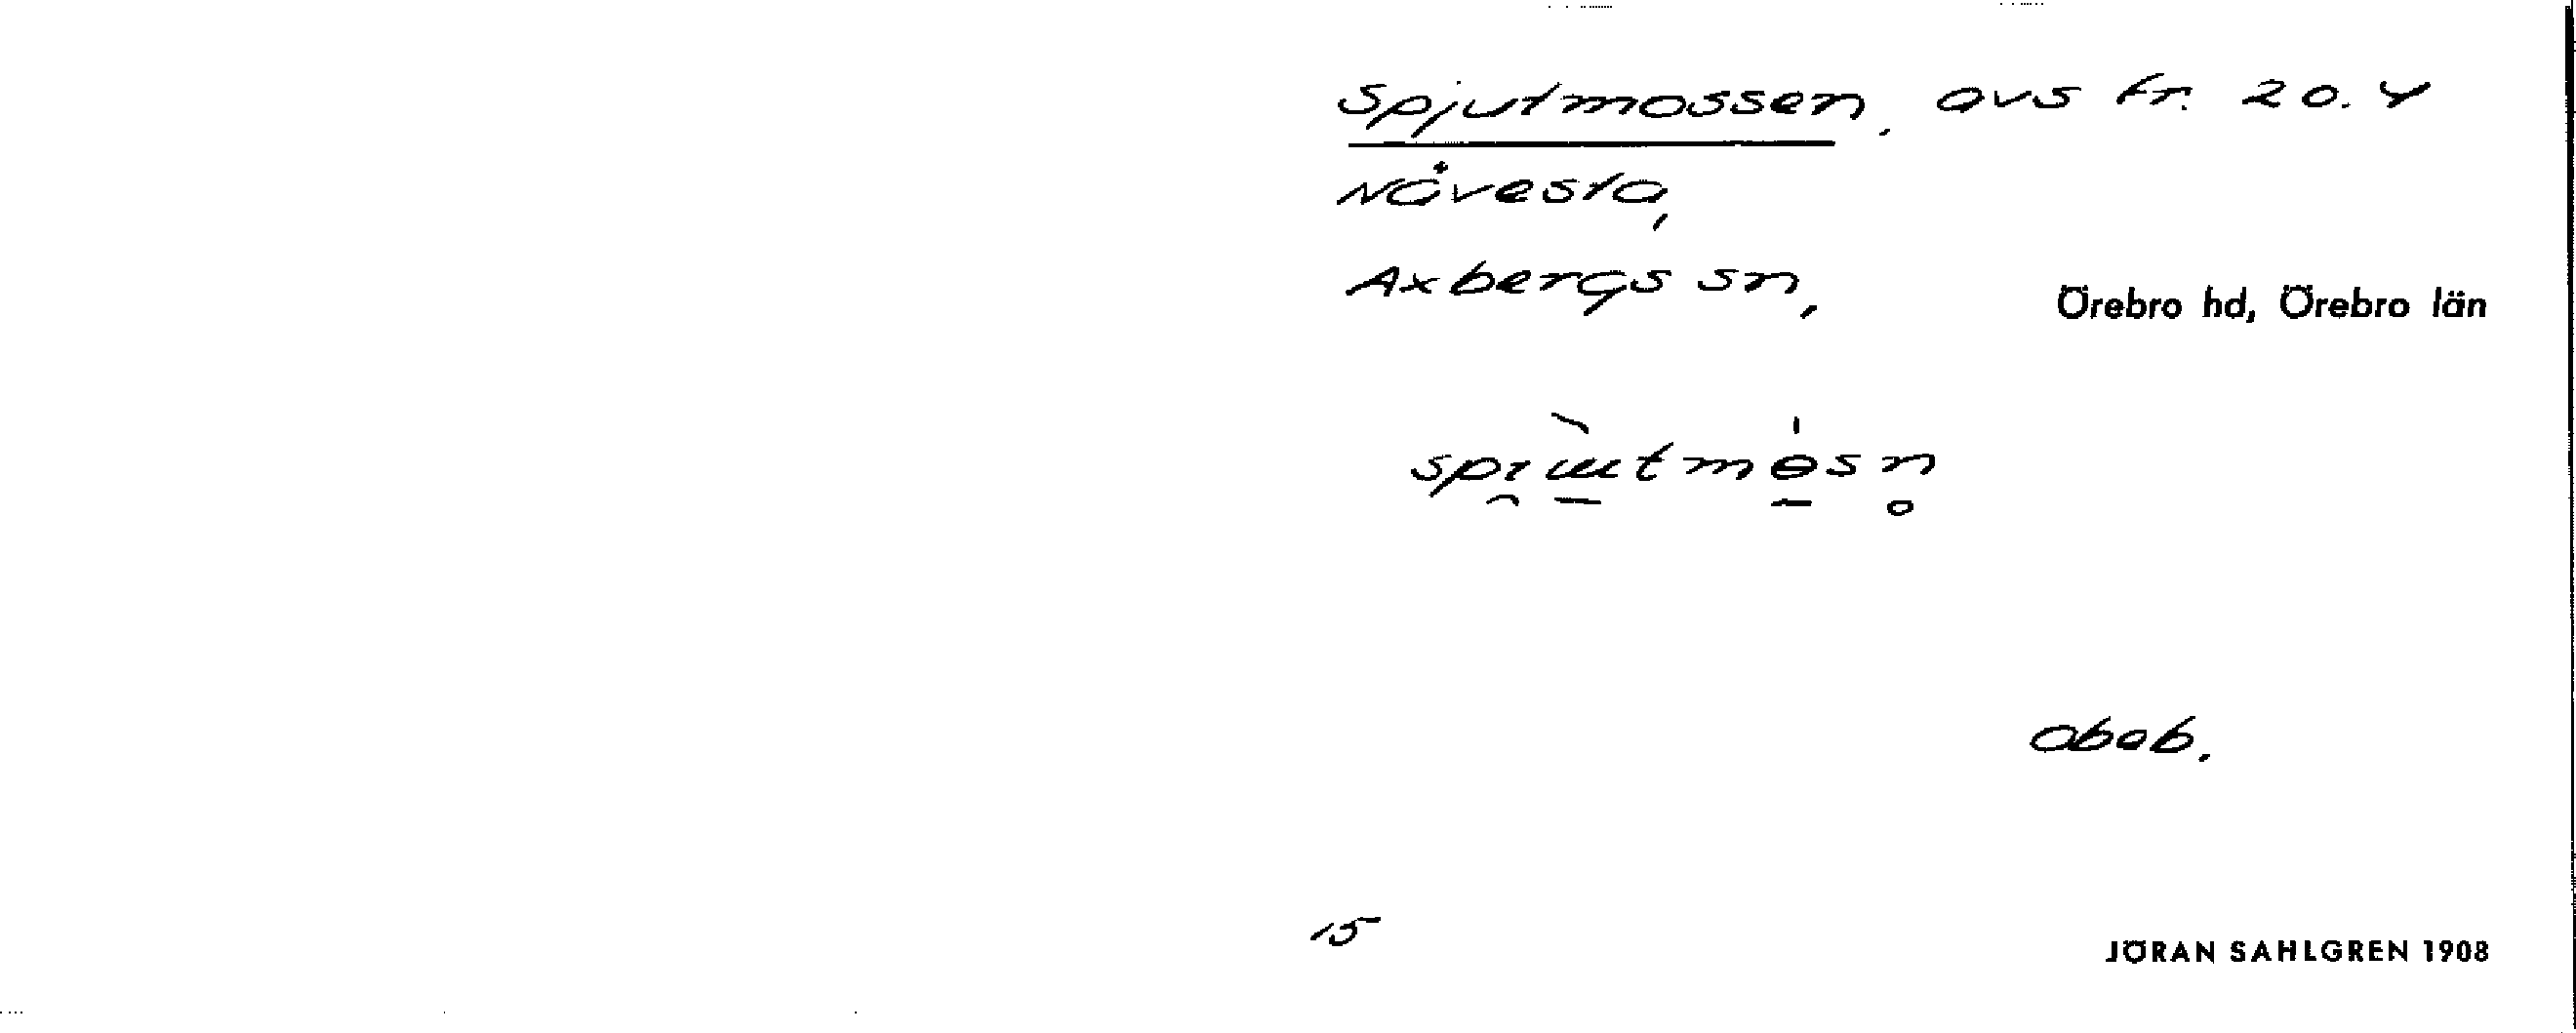 Spjutmossen, avs fr. 20.4
Nåvesta,
Axbergs sn,
Örebro hd, Örebro län
obeb.
15
JÖRAN SAHLGREN 1908